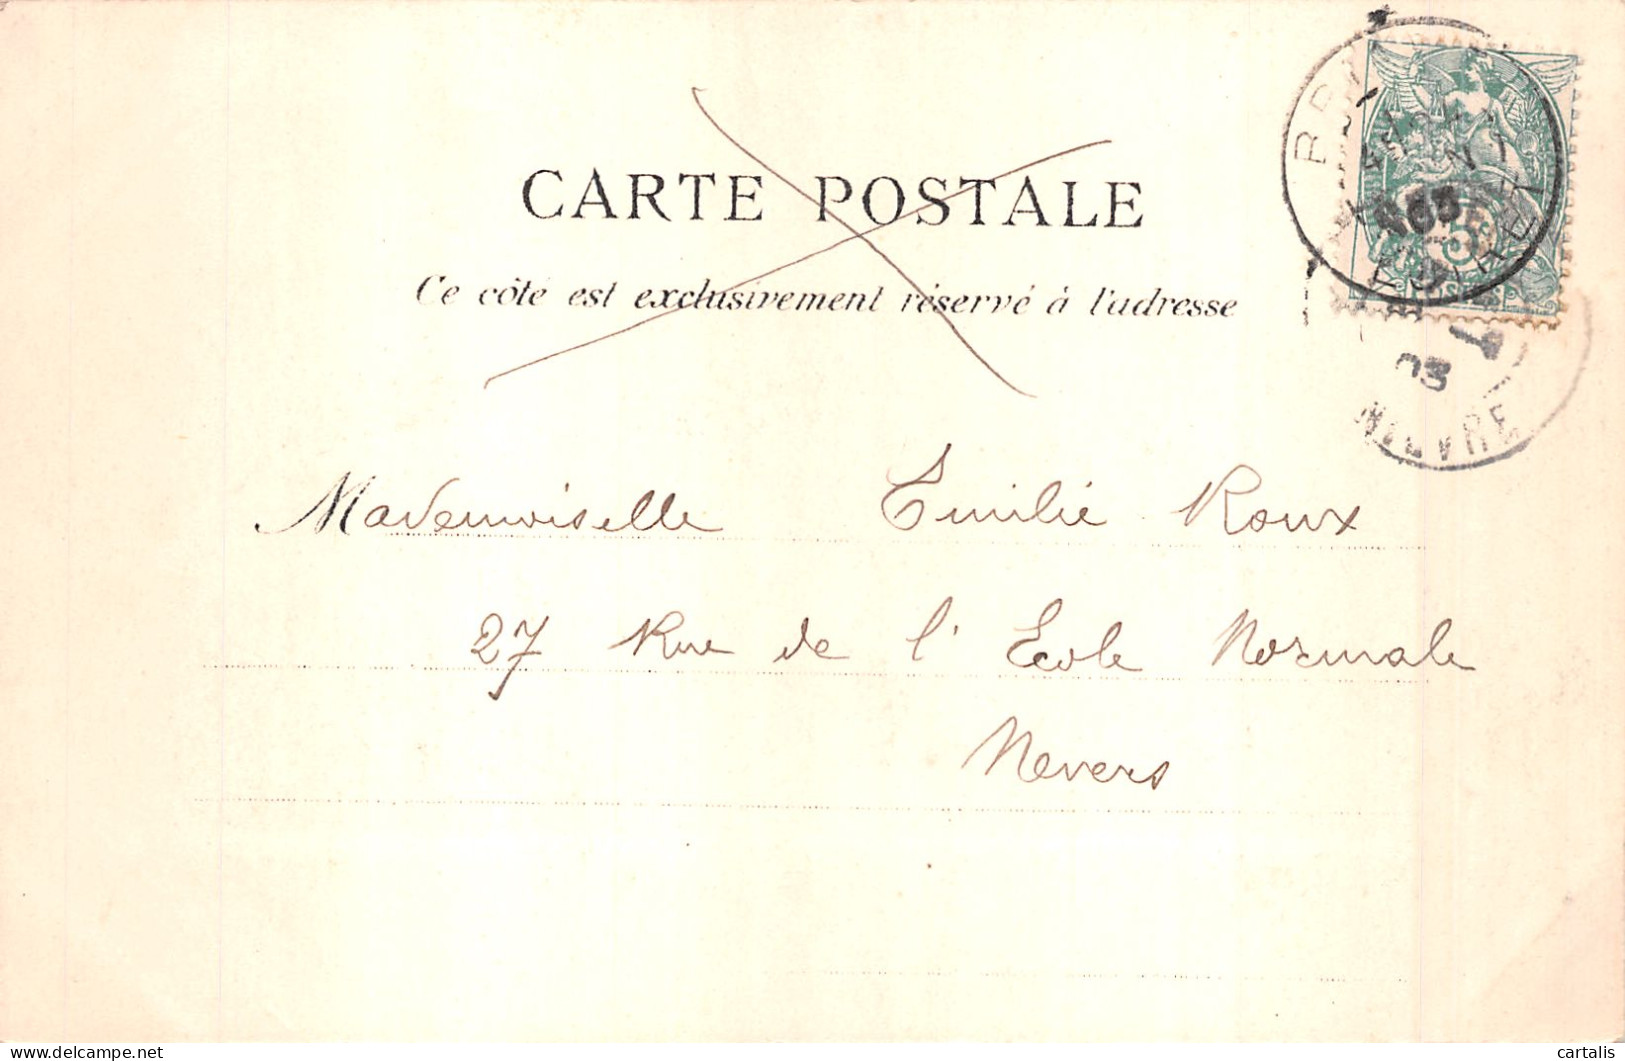 CARTE POSTALE
Ce côté est exclusivement réservé à l'adresse
03
NIEVRE
Mademoiselle Emilie Roux
27 Rue de l'Ecole Normale
Nevers
delcampe.net
cartalis